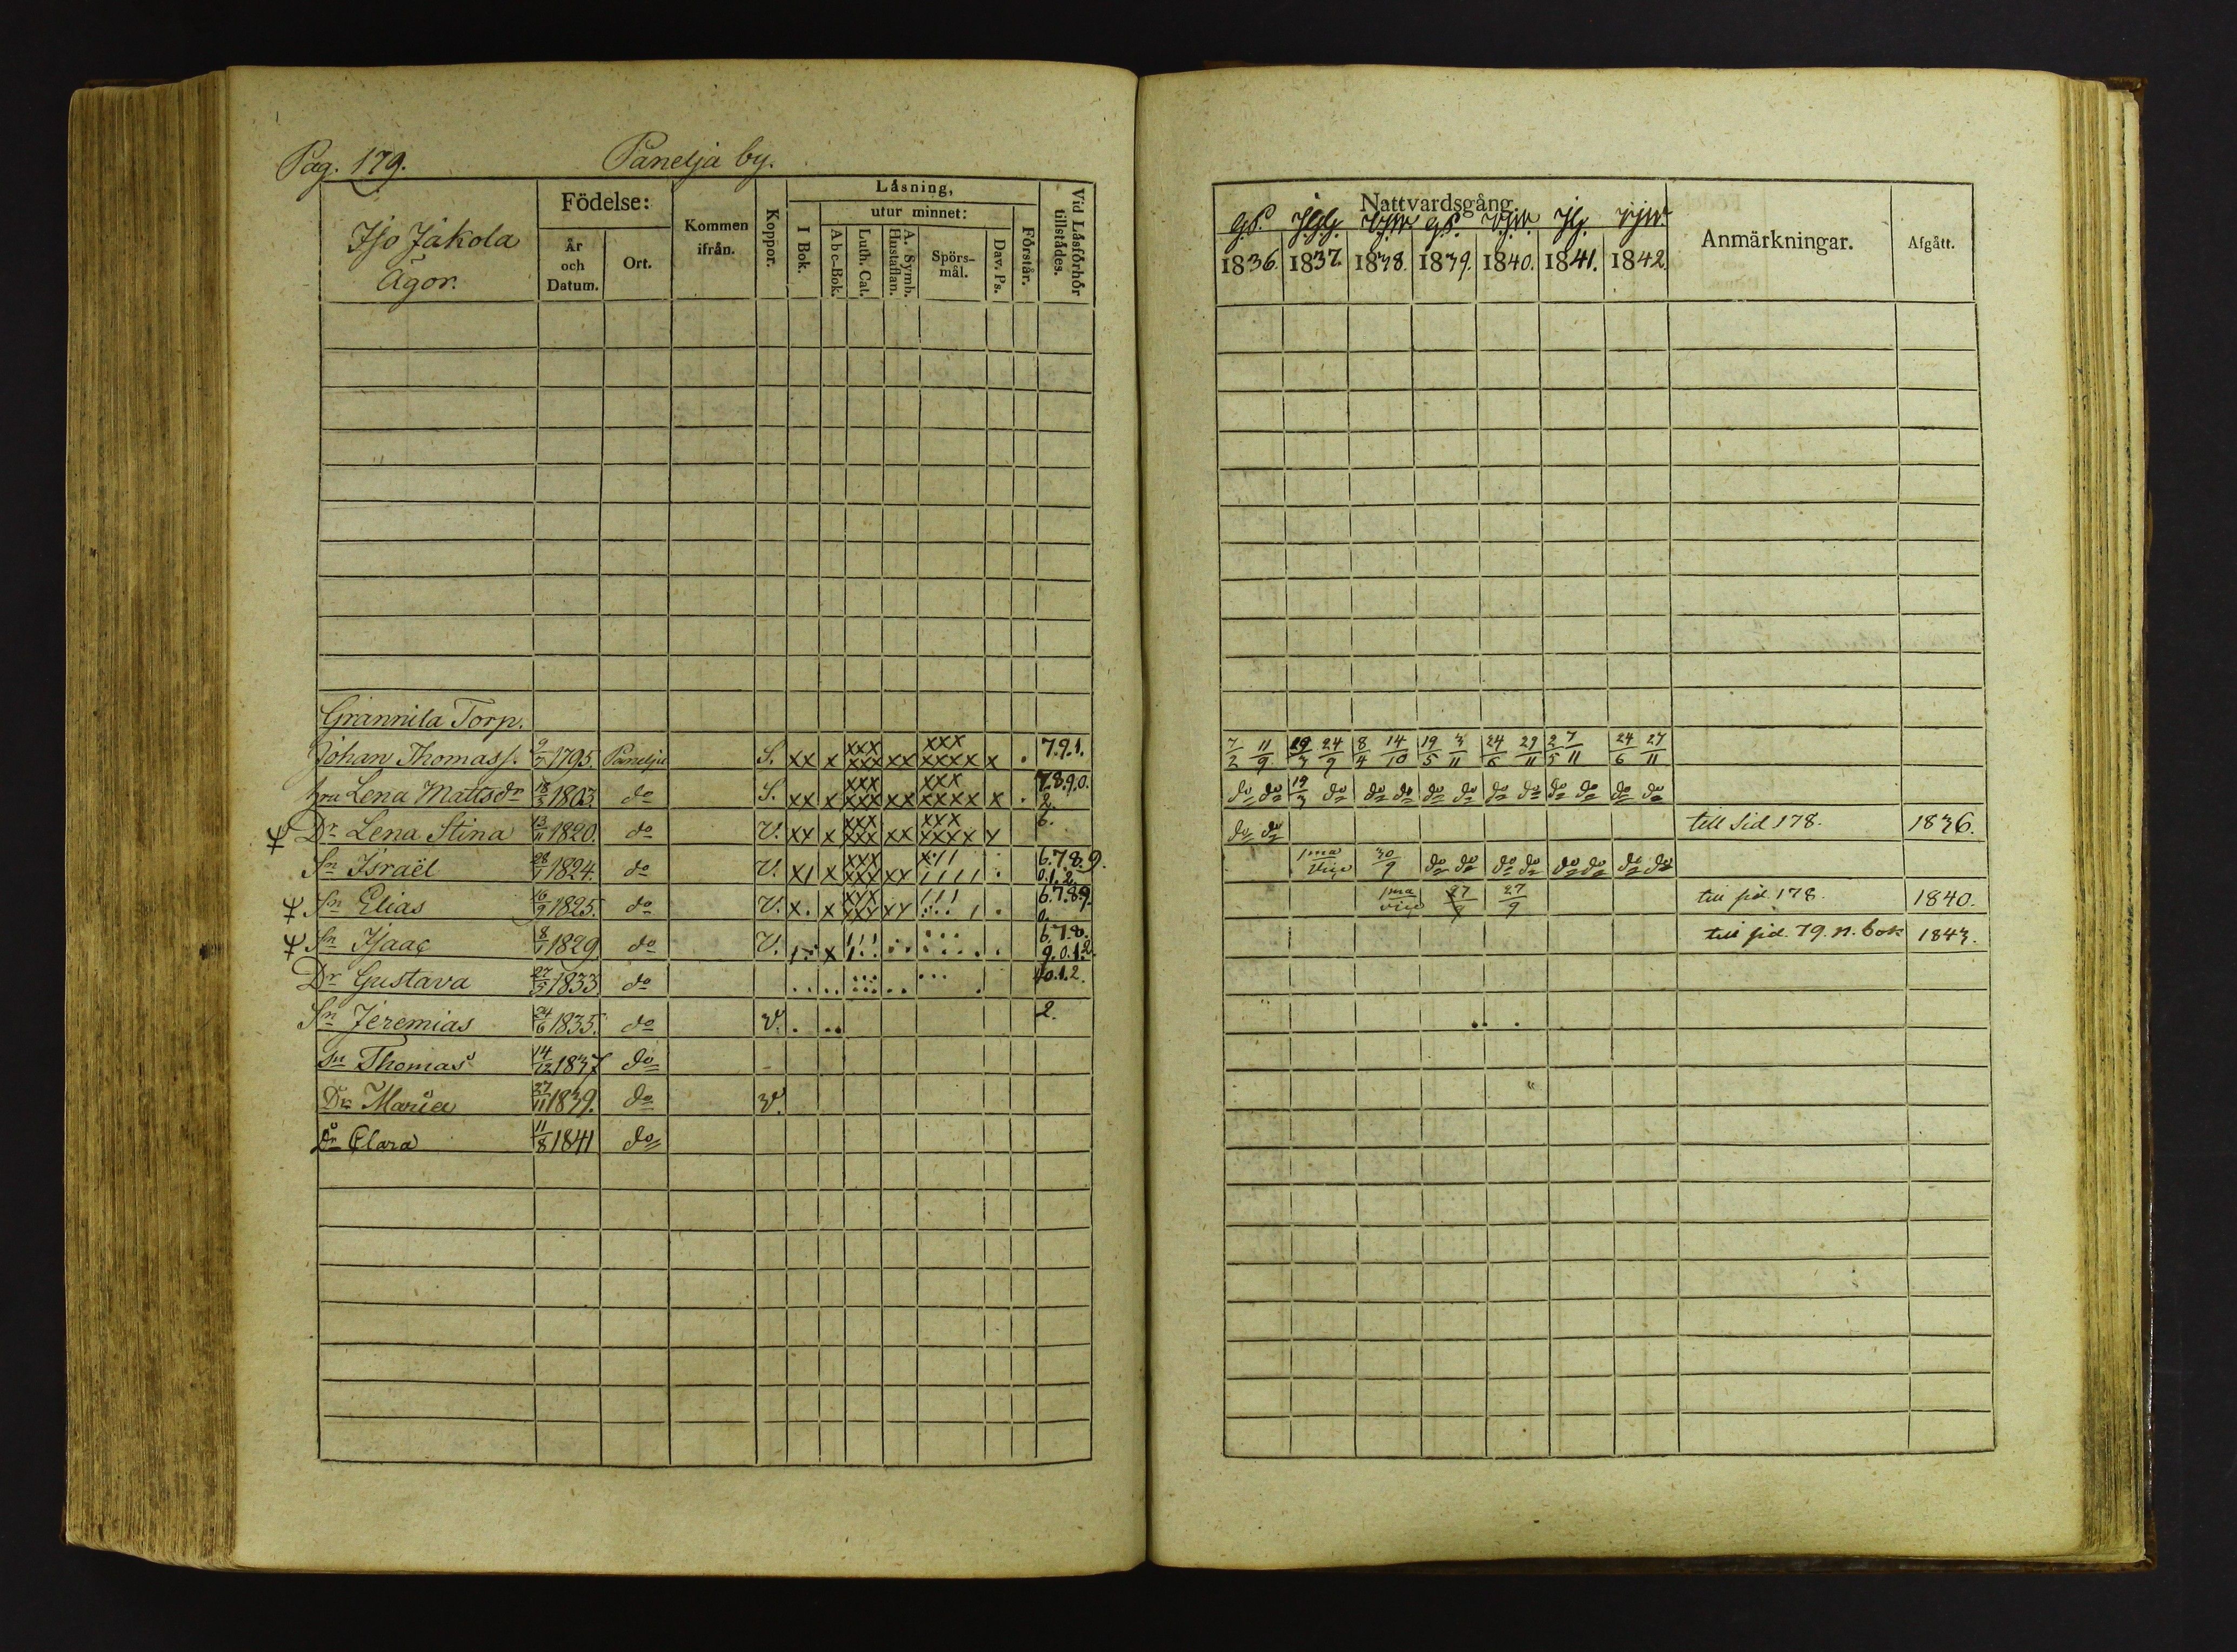 Pag. 179.
Panelja by.
Iso Jakola
Ägor.
Födelse:
År
och
Datum.
Ort.
Kommen
ifrån.
Koppor.
Läsning,
I Bok.
utur minnet:
A b c-Bok.
Luth. Cat.
A. Symb.
Hustaflan.
Spörs-
mål.
Dav. Ps.
Förstår.
Vid Läsförhör
tillstädes.
Grannila Torp.
Johan Thomass. 1795. Panelja S. xx x xxx xxx xx xxx xxxx x . 7.9.1.
hru Lena Mattsdr 18/3 1803 do S. xx x xxx xxx xx xxx xxxx x . 7.8.9.0. 2.
Dr Lena Stina 1820. do V. xx x xxx xxx xx xxx xxxx x 6.
Sn Israël 1824. do V. x x xxx xxx xx 6.7.8.9. 0.1.2
Sn Elias 16/9 1825. do V. x. x xxx xxx xx 6.7.8.9. 0.
Sn Isaac 1829 do V. x 6.7.8. 9.0.1.2.
Dr Gustava 27/5 1833 do 40.1.2.
Sn Jeremias 24/6 1835. do V. . .. 2.
Sn Thomas 14/12 1837 do
Dr Maria 27/11 1839. do V.
Dr Clara 11/8 1841 do
Nattvardsgång
1836. 1837. 1838. 1839. 1840. 1841. 1842.
Anmärkningar.
Afgått.
7/2 11/9 19/3 24/9 8/4 14/10 19/5 3/11 24/6 29/11 2/5 7/11 24/6 27/11
do do 19/3 do do do do do do do do do do do
do do till Sid 178. 1836.
1ma vice 30/9 do do do do do do do do
1ma vice 27/9 27/9 till sid. 178. 1840.
till sid. 79. n. bok 1843.